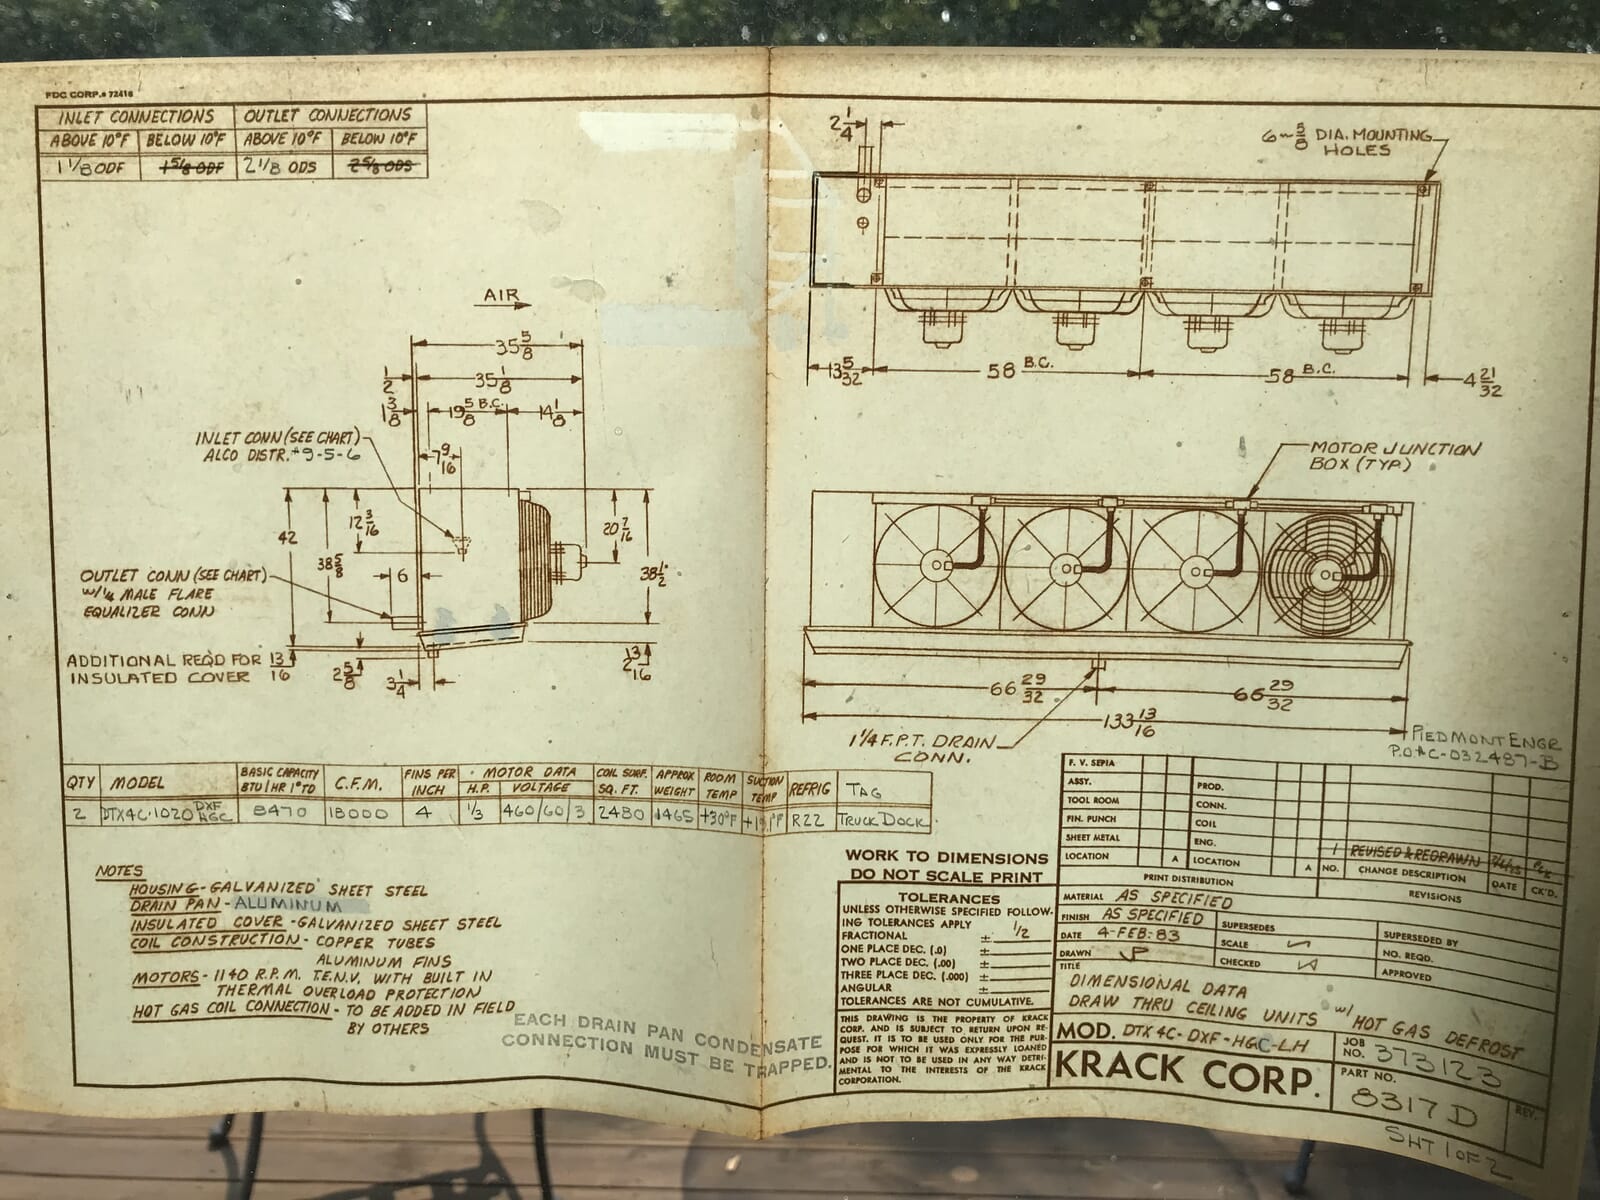 PDC CORP.# 72416
INLET CONNECTIONS OUTLET CONNECTIONS
ABOVE 10°F BELOW 10°F ABOVE 10°F BELOW 10°F
1 1/8 ODF 1 5/8 ODF 2 1/8 ODS 2 5/8 ODS
2 1/4
6 - 5/8 DIA. MOUNTING
HOLES
13 5/32
58 B.C.
58 B.C.
4 21/32
AIR
35 5/8
1/2
35 1/8
1 3/8
19 5/8 B.C.
14 1/8
INLET CONN (SEE CHART)
ALCO DISTR. #9-5-6
7 9/16
42
38 5/8
12 3/16
6
20 7/16
38 1/2
OUTLET CONN (SEE CHART)
W/ 1/4 MALE FLARE
EQUALIZER CONN
ADDITIONAL REQD FOR 13/16
INSULATED COVER
2 5/8
3 1/4
2 13/16
MOTOR JUNCTION
BOX (TYP.)
66 29/32
66 29/32
133 13/16
1 1/4 F.P.T. DRAIN
CONN.
PIEDMONT ENGR
P.O.#C-032487-B
QTY MODEL BASIC CAPACITY BTU/HR 1° TD C.F.M. FINS PER INCH MOTOR DATA H.P. VOLTAGE COIL SURF. SQ. FT. APPROX WEIGHT ROOM TEMP SUCTION TEMP REFRIG TAG
2 DTX4C-1020 DXF HGC 8470 18000 4 1/3 460/60/3 2480 1465 +30°F R22 TRUCK DOCK
NOTES
HOUSING - GALVANIZED SHEET STEEL
DRAIN PAN - ALUMINUM
INSULATED COVER - GALVANIZED SHEET STEEL
COIL CONSTRUCTION - COPPER TUBES
ALUMINUM FINS
MOTORS - 1140 R.P.M. T.E.N.V. WITH BUILT IN
THERMAL OVERLOAD PROTECTION
HOT GAS COIL CONNECTION - TO BE ADDED IN FIELD
BY OTHERS
EACH DRAIN PAN CONDENSATE
CONNECTION MUST BE TRAPPED.
WORK TO DIMENSIONS
DO NOT SCALE PRINT
TOLERANCES
UNLESS OTHERWISE SPECIFIED FOLLOW-
ING TOLERANCES APPLY
FRACTIONAL ± 1/2
ONE PLACE DEC. (.0) ±
TWO PLACE DEC. (.00) ±
THREE PLACE DEC. (.000) ±
ANGULAR ±
TOLERANCES ARE NOT CUMULATIVE.
THIS DRAWING IS THE PROPERTY OF KRACK
CORP. AND IS SUBJECT TO RETURN UPON RE-
QUEST. IT IS TO BE USED ONLY FOR THE PUR-
POSE FOR WHICH IT WAS EXPRESSLY LOANED
AND IS NOT TO BE USED IN ANY WAY DETRI-
MENTAL TO THE INTERESTS OF THE KRACK
CORPORATION.
F. V. SEPIA
ASSY. PROD.
TOOL ROOM CONN.
FIN. PUNCH COIL
SHEET METAL ENG. 1 REVISED & REDRAWN
LOCATION A LOCATION A NO. CHANGE DESCRIPTION DATE CK'D.
PRINT DISTRIBUTION REVISIONS
MATERIAL AS SPECIFIED
FINISH AS SPECIFIED SUPERSEDES SUPERSEDED BY
DATE 4-FEB-83 SCALE NO. REQD.
DRAWN CHECKED APPROVED
TITLE
DIMENSIONAL DATA
DRAW THRU CEILING UNITS W/ HOT GAS DEFROST
MOD. DTX 4C-DXF-HGC-LH JOB NO. 373123
KRACK CORP. PART NO. 8317 D REV.
SHT 1 OF 2